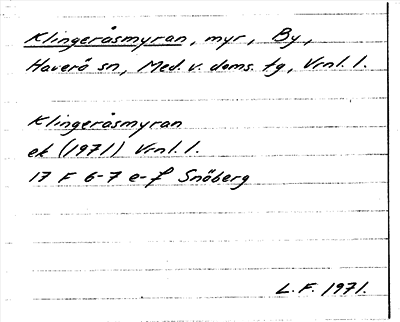 Klingeråsmyran, myr, By,
Haverö sn, Med. v. doms. tg, Vrnl. l.
Klingeråsmyran
ek (1971) Vrnl. l.
17 F 6-7 e-f Snöberg
L.F. 1971.